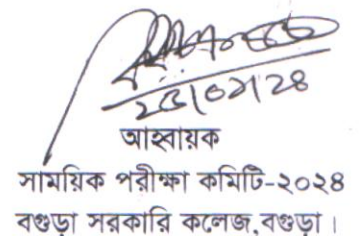 আহ্বায়ক
সাময়িক পরীক্ষা কমিটি-২০২৪
বগুড়া সরকারি কলেজ,বগুড়া।